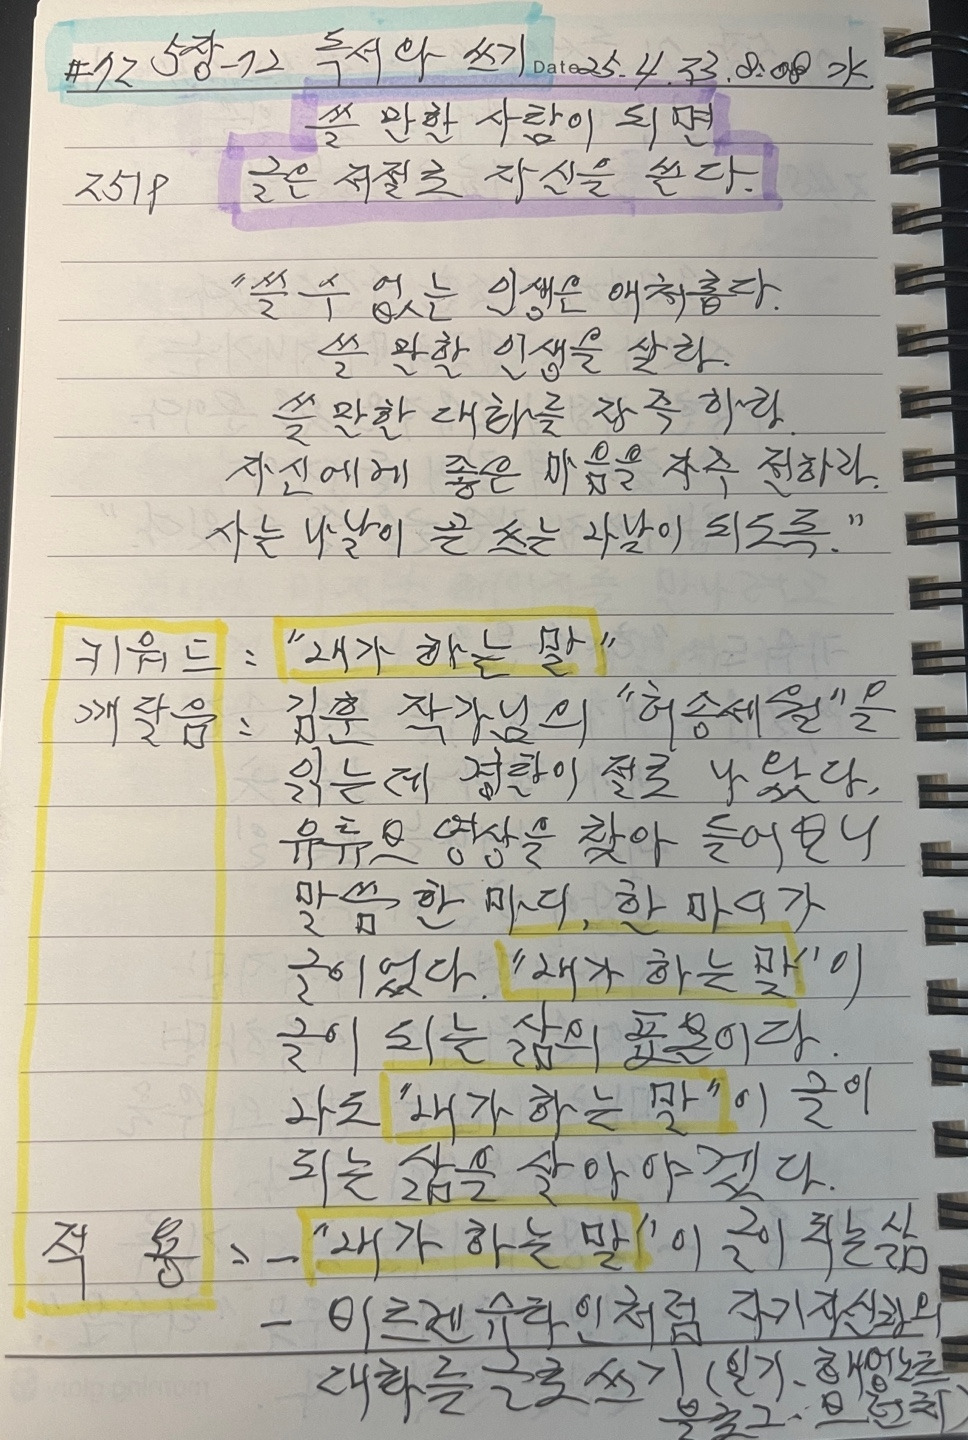 #12 5장-12 독서와 쓰기 Date 25.4.23.8:08 水
쓸 만한 사람이 되면
251P 글은 저절로 자신을 쓴다.
"쓸 수 없는 인생은 애처롭다.
쓸 만한 인생을 살라.
쓸 만한 대화를 자주 하라.
자신에게 좋은 마음을 자주 전하라.
사는 나날이 곧 쓰는 나날이 되도록."
키워드 : "내가 하는 말"
깨달음 : 김훈 작가님의 "허송세월"을
읽는데 경탄이 절로 나왔다.
유튜브 영상을 찾아 들어보니
말씀 한 마디, 한 마디가
글이었다. "내가 하는 말"이
글이 되는 삶의 표본이다.
나도 "내가 하는 말"이 글이
되는 삶을 살아야겠다.
적 용 : - "내가 하는 말"이 글이 되는 삶
- 이르렌 슈타인처럼 자기자신과의
대화를 글로 쓰기 (일기.
블로그.